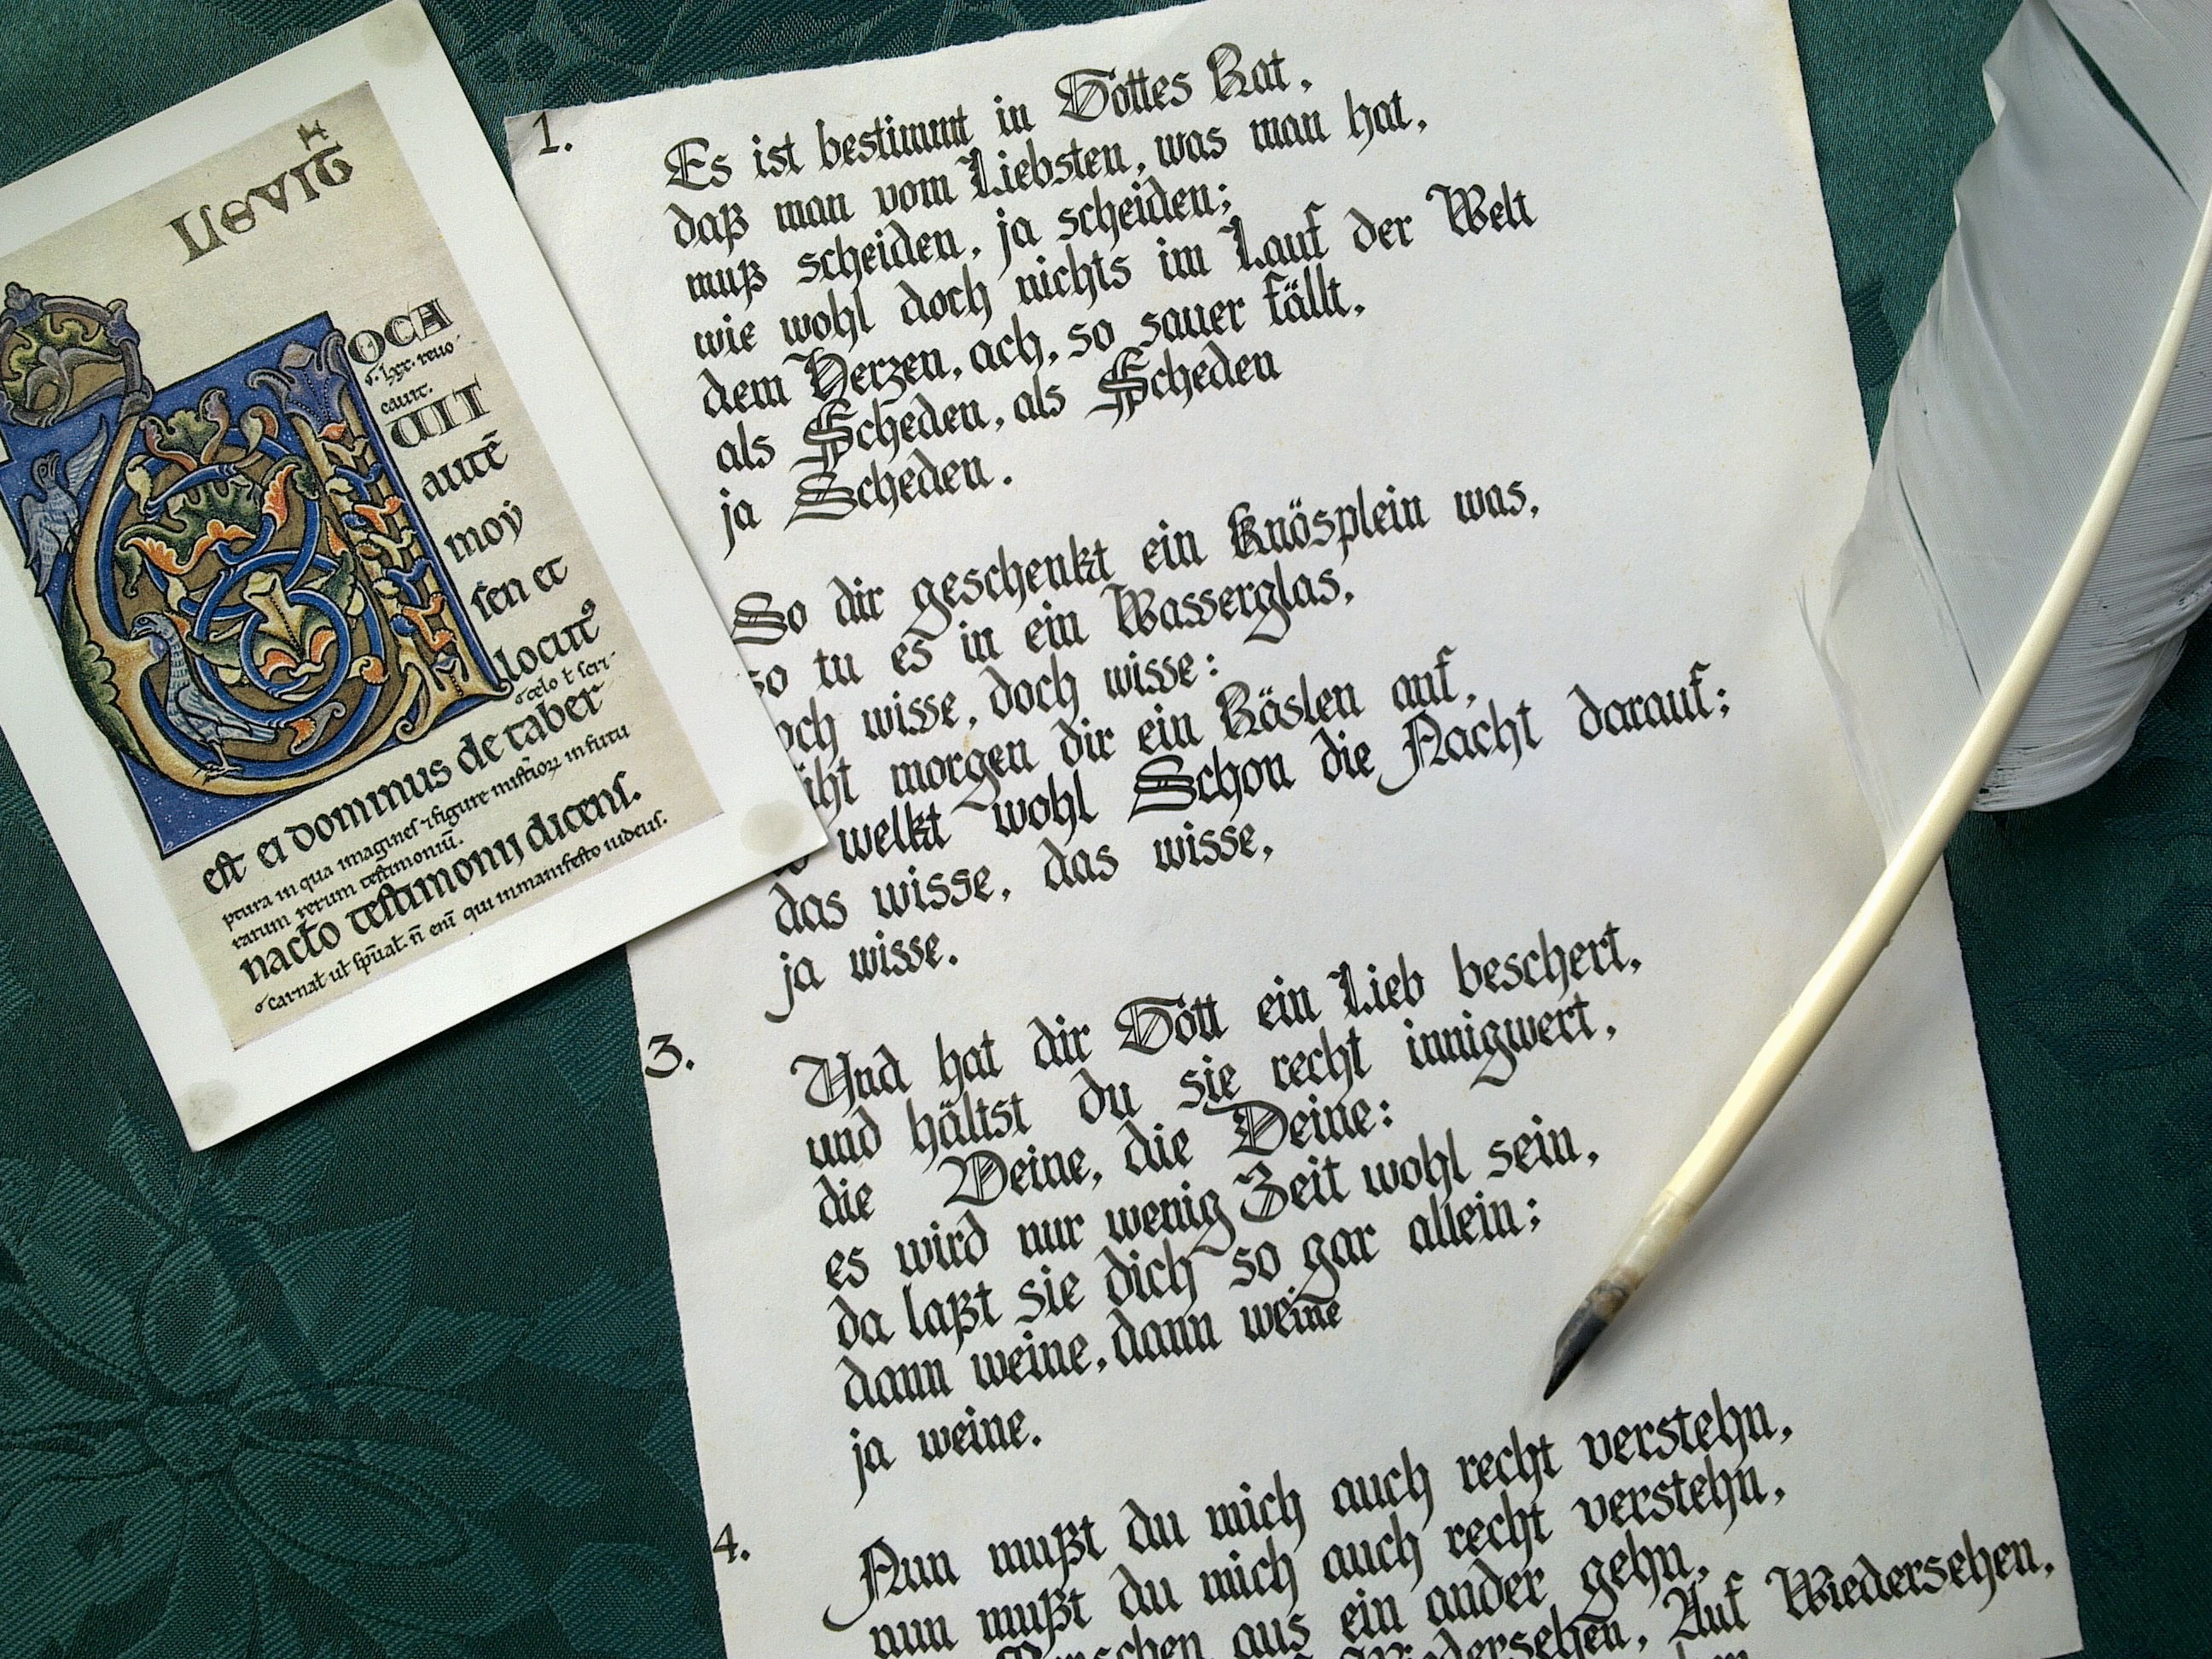 OCA
cauit.
UIT
autē
moẏ
sen et
locutꝰ
est ei dominus de taber
ptura in qua imagines ⁊ figure in futu
rarum rerum testimoniū.
naclo testimonij dicens.
qui in manifesto iudeus.
1.
Es ist bestimmt in Gottes Rat,
daß man vom Liebsten, was man hat,
muß scheiden, ja scheiden;
wie wohl doch nichts im Lauf der Welt
dem Herzen, ach, so sauer fällt,
als Scheden, als Scheden
ja Scheden.
So dir geschenkt ein Knösplein was,
so tu es in ein Wasserglas,
och wisse, doch wisse:
üht morgen dir ein Röslen auf,
welkt wohl Schon die Nacht darauf;
das wisse, das wisse,
ja wisse.
3.
Und hat dir Gott ein Lieb beschert,
und hältst du sie recht innigwert,
die Deine, die Deine:
es wird nur wenig Zeit wohl sein,
da laßt sie dich so gar allein;
dann weine, dann weine
ja weine.
4.
Nun mußt du mich auch recht verstehn,
nun mußt du mich auch recht verstehn,
nschen aus ein ander gehn,
Wiedersehen, Auf Wiedersehen,